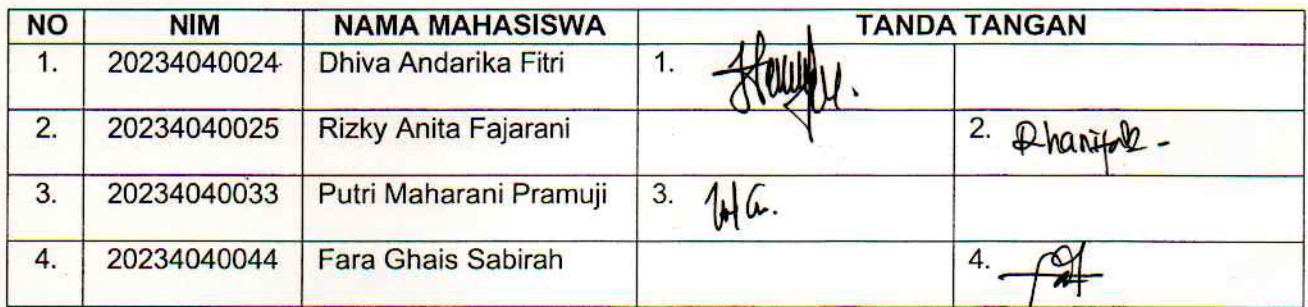 NO NIM NAMA MAHASISWA TANDA TANGAN
1. 20234040024 Dhiva Andarika Fitri 1.
2. 20234040025 Rizky Anita Fajarani 2.
3. 20234040033 Putri Maharani Pramuji 3.
4. 20234040044 Fara Ghais Sabirah 4.